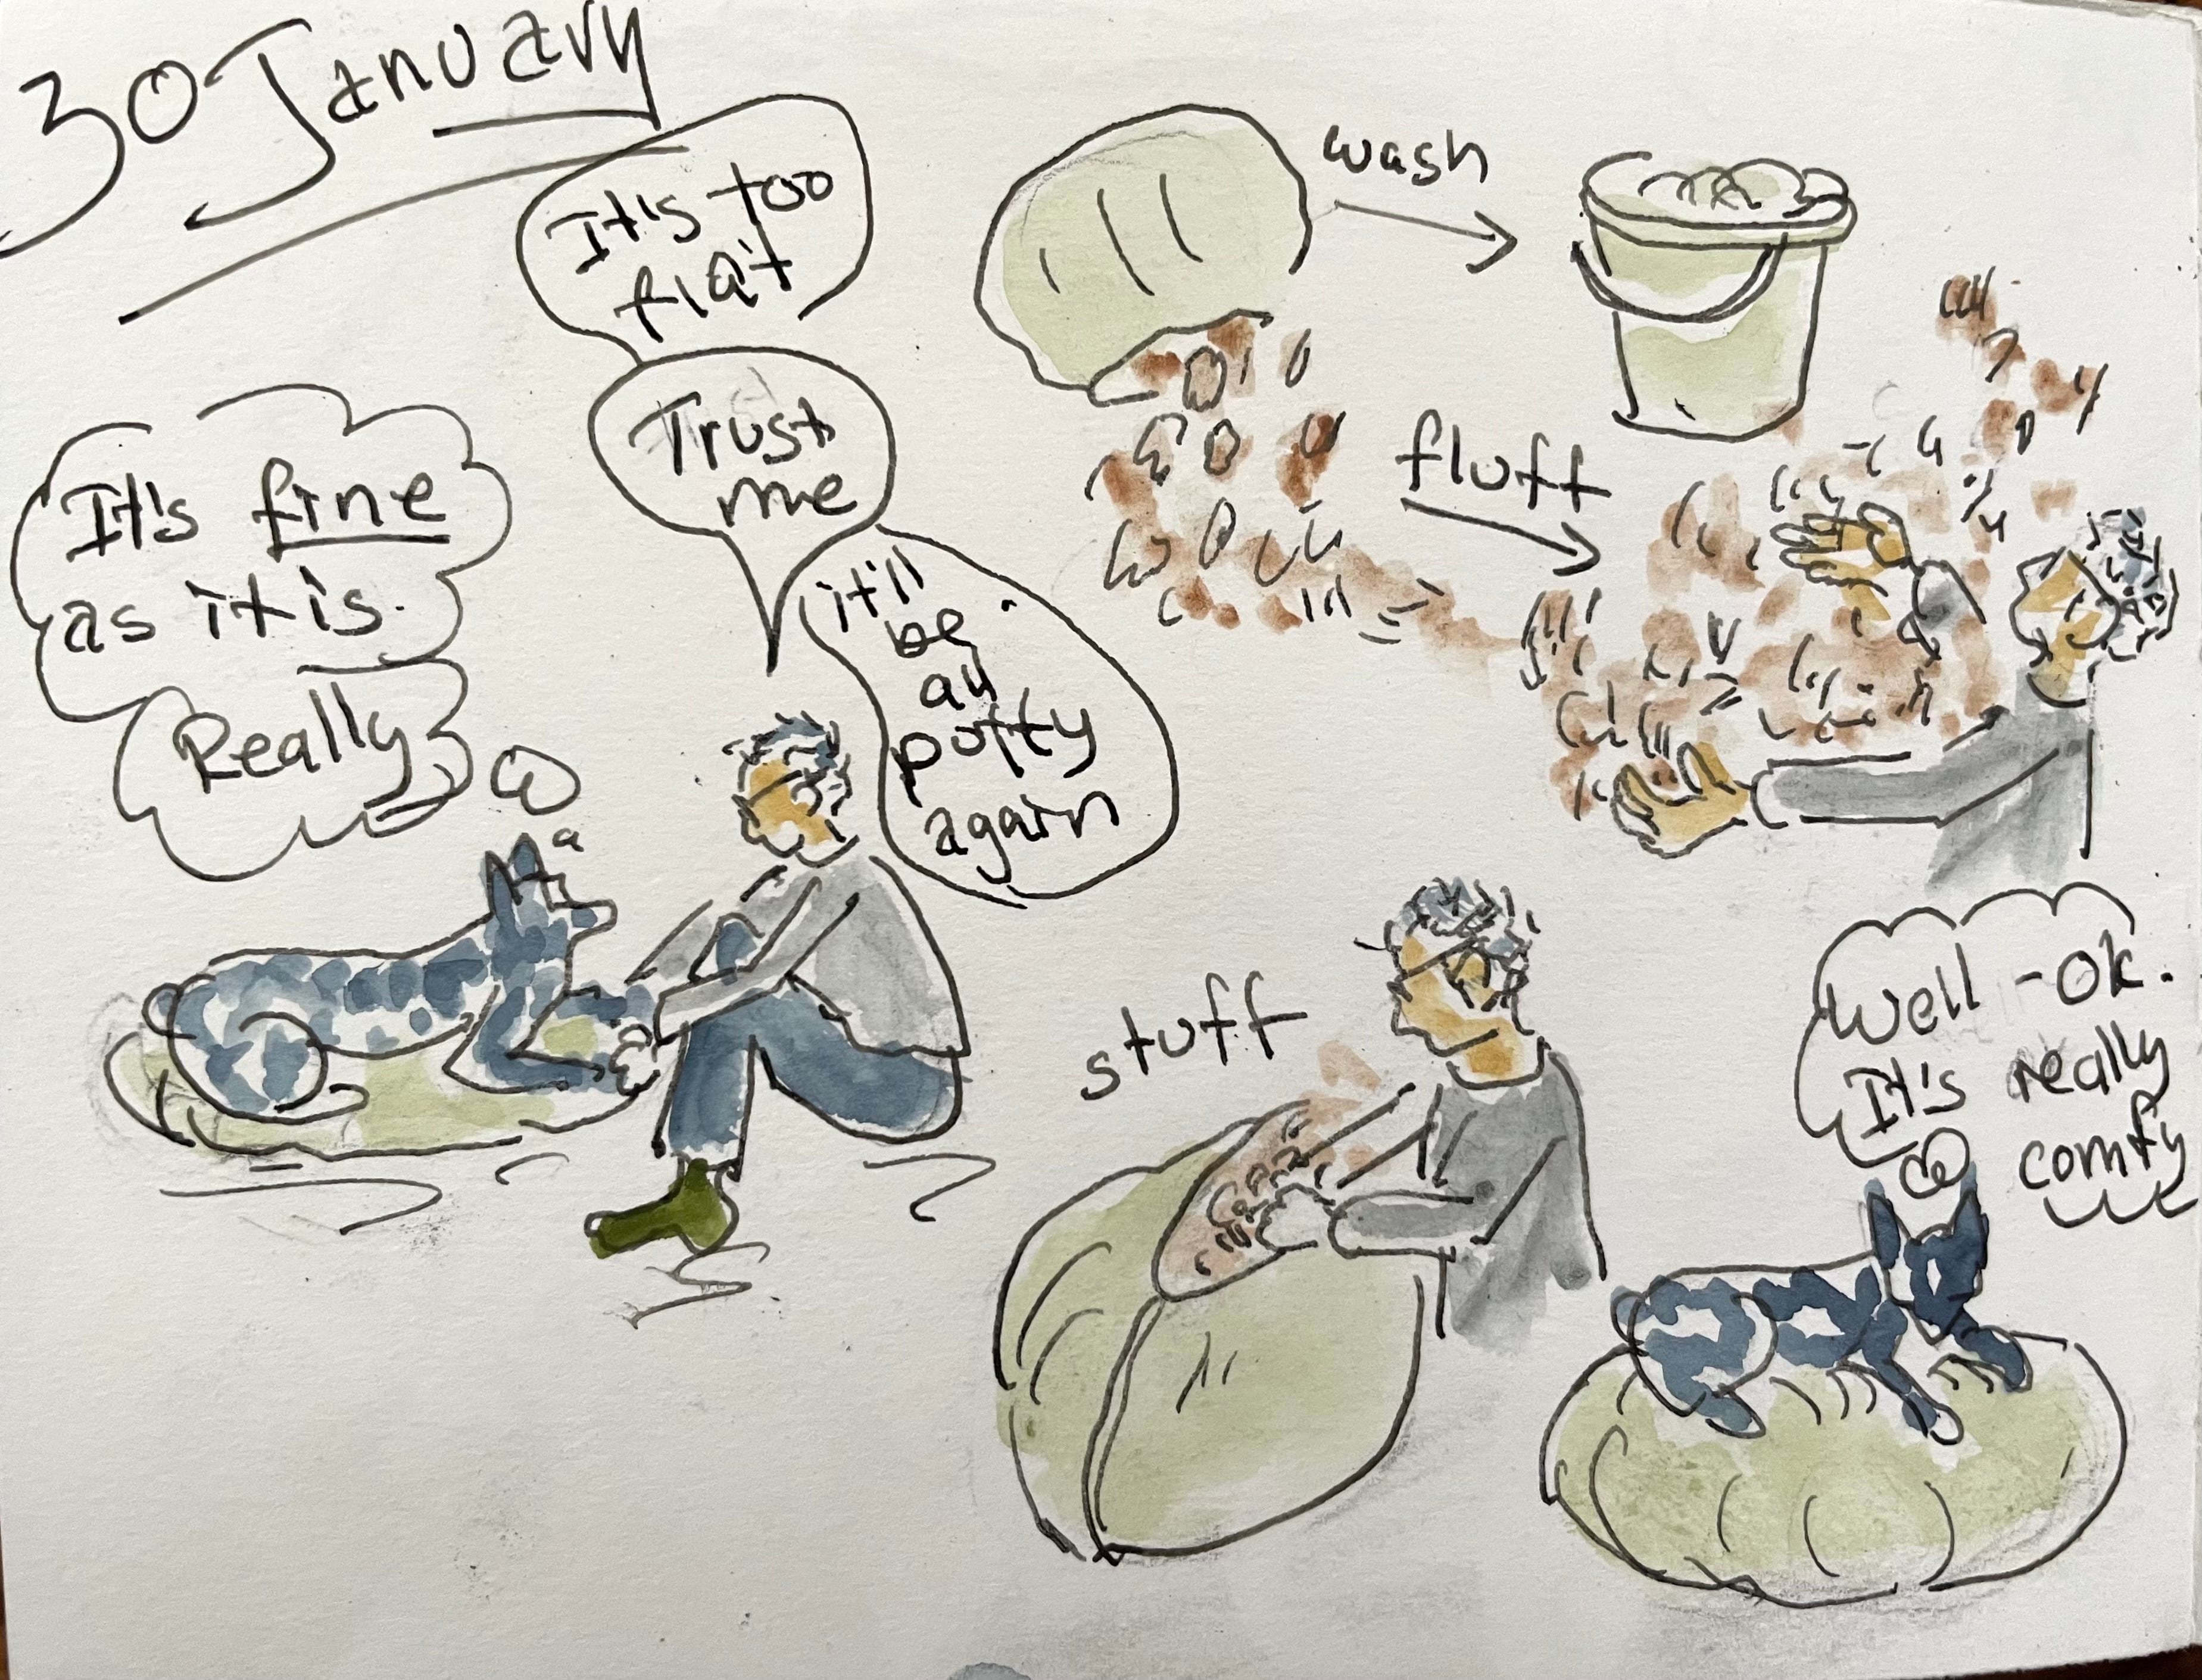 30 January
It's too
flat
Trust
me
it'll
be
all
puffy
again
It's fine
as it is.
Really
wash
fluff
stuff
Well - ok.
It's really
comfy